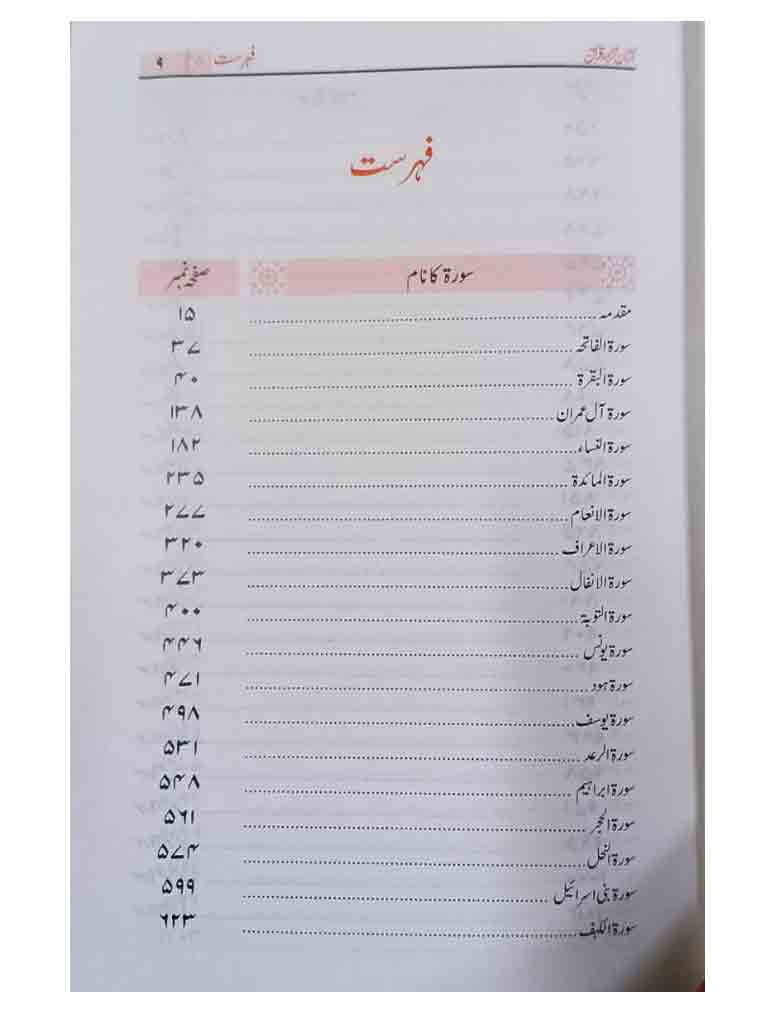 آسان ترجمہ قرآن فہرست ۹
فہرست
سورۃ کا نام صفحہ نمبر
مقدمہ ۱۵
سورۃ الفاتحہ ۳۷
سورۃ البقرۃ ۴۰
سورۃ آل عمران ۱۳۸
سورۃ النساء ۱۸۲
سورۃ المائدۃ ۲۳۵
سورۃ الانعام ۲۷۷
سورۃ الاعراف ۳۲۰
سورۃ الأنفال ۳۷۳
سورۃ التوبۃ ۴۰۰
سورۃ یونس ۴۴۶
سورۃ ہود ۴۷۱
سورۃ یوسف ۴۹۸
سورۃ الرعد ۵۳۱
سورۃ ابراہیم ۵۴۸
سورۃ الحجر ۵۶۱
سورۃ النحل ۵۷۴
سورۃ بنی اسرائیل ۵۹۹
سورۃ الکہف ۶۲۳